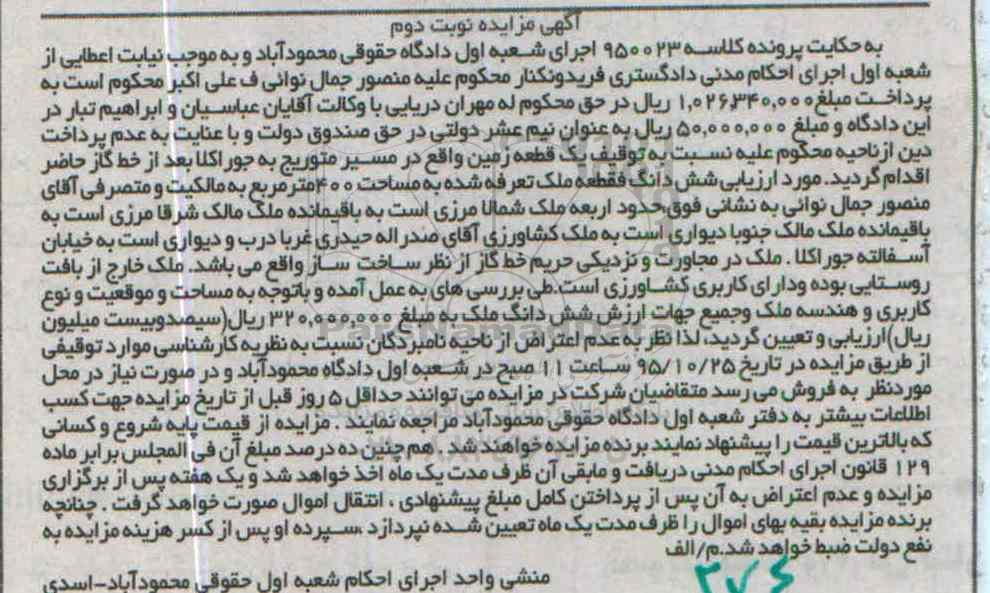 آگهی مزایده نوبت دوم
به حکایت پرونده کلاسه ۹۵۰۰۲۳ اجرای شعبه اول دادگاه حقوقی محمودآباد و به موجب نیابت اعطایی از
شعبه اول اجرای احکام مدنی دادگستری فریدونکنار محکوم علیه منصور جمال نوائی ف علی اکبر محکوم است به
پرداخت مبلغ ۱,۰۲۶,۳۴۰,۰۰۰ ریال در حق محکوم له مهران دریایی با وکالت آقایان عباسیان و ابراهیم تبار در
این دادگاه و مبلغ ۵۰,۰۰۰,۰۰۰ ریال به عنوان نیم عشر دولتی در حق صندوق دولت و با عنایت به عدم پرداخت
دین از ناحیه محکوم علیه نسبت به توقیف یک قطعه زمین واقع در مسیر متوریج به جور اکلا بعد از خط گاز حاضر
اقدام گردید. مورد ارزیابی شش دانگ فقطعه ملک تعرفه شده به مساحت ۴۰۰ متر مربع به مالکیت و متصرفی آقای
منصور جمال نوائی به نشانی فوق حدود اربعه ملک شمالا مرزی است به باقیمانده ملک مالک شرقا مرزی است به
باقیمانده ملک مالک جنوبا دیواری است به ملک کشاورزی آقای صدر اله حیدری غربا درب و دیواری است به خیابان
آسفالته جور اکلا . ملک در مجاورت و نزدیکی حریم خط گاز از نظر ساخت ساز واقع می باشد. ملک خارج از بافت
روستایی بوده ودارای کاربری کشاورزی است.طی بررسی های به عمل آمده و باتوجه به مساحت و موقعیت و نوع
کاربری و هندسه ملک وجمیع جهات ارزش شش دانگ ملک به مبلغ ۳۲۰,۰۰۰,۰۰۰ ریال(سیصدوبیست میلیون
ریال)ارزیابی و تعیین گردید، لذا نظر به عدم اعتراض از ناحیه نامبردگان نسبت به نظریه کارشناسی موارد توقیفی
از طریق مزایده در تاریخ ۹۵/۱۰/۲۵ ساعت ۱۱ صبح در شعبه اول دادگاه محمودآباد و در صورت نیاز در محل
موردنظر به فروش می رسد متقاضیان شرکت در مزایده می توانند حداقل ۵ روز قبل از تاریخ مزایده جهت کسب
اطلاعات بیشتر به دفتر شعبه اول دادگاه حقوقی محمودآباد مراجعه نمایند . مزایده از قیمت پایه شروع و کسانی
که بالاترین قیمت را پیشنهاد نمایند برنده مزایده خواهند شد . هم چنین ده درصد مبلغ آن فی المجلس برابر ماده
۱۲۹ قانون اجرای احکام مدنی دریافت و مابقی آن ظرف مدت یک ماه اخذ خواهد شد و یک هفته پس از برگزاری
مزایده و عدم اعتراض به آن پس از پرداختن کامل مبلغ پیشنهادی ، انتقال اموال صورت خواهد گرفت . چنانچه
برنده مزایده بقیه بهای اموال را ظرف مدت یک ماه تعیین شده نپردازد ،سپرده او پس از کسر هزینه مزایده به
نفع دولت ضبط خواهد شد.م/الف
۲۷۶
منشی واحد اجرای احکام شعبه اول حقوقی محمودآباد-اسدی